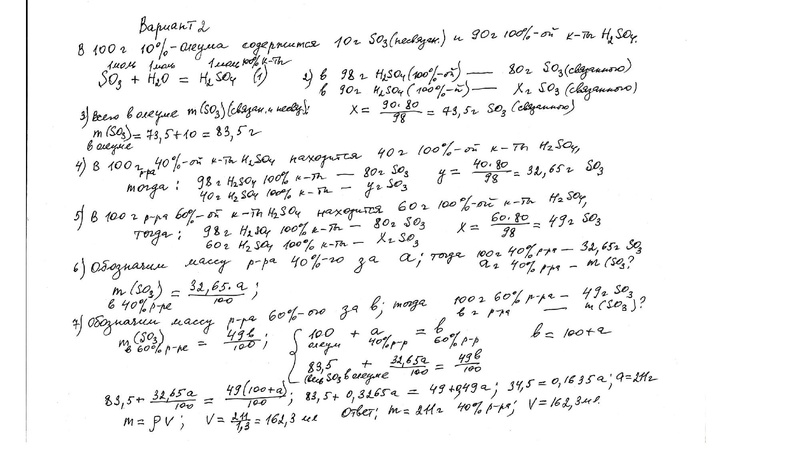 Вариант 2
В 100г 10%-олеума содержится 10г SO₃(несвязан.) и 90г 100%-ой к-ты H₂SO₄.
1моль 1моль 1моль 100% к-ты
SO₃ + H₂O = H₂SO₄ (1) 2) в 98г H₂SO₄(100%-ой) — 80г SO₃(связанного)
в 90г H₂SO₄(100%-й) — Xг SO₃(связанного)
3) Всего в олеуме m(SO₃)(связан. и несвяз.): X = 90·80/98 = 73,5г SO₃(связанного)
m(SO₃) в олеуме = 73,5+10 = 83,5г
4) В 100г р-ра 40%-ой к-ты H₂SO₄ находится 40г 100%-ой к-ты H₂SO₄,
тогда: 98г H₂SO₄ 100% к-ты — 80г SO₃ y = 40·80/98 = 32,65г SO₃
40г H₂SO₄ 100% к-ты — yг SO₃
5) В 100г р-ра 60%-ой к-ты H₂SO₄ находится 60г 100%-ой к-ты H₂SO₄,
тогда: 98г H₂SO₄ 100% к-ты — 80г SO₃ X = 60·80/98 = 49г SO₃
60г H₂SO₄ 100% к-ты — Xг SO₃
6) Обозначим массу р-ра 40%-го за a; тогда 100г 40% р-ра — 32,65г SO₃
aг 40% р-ра — m(SO₃)?
m(SO₃) в 40% р-ре = 32,65·a/100;
7) Обозначим массу р-ра 60%-ого за b; тогда 100г 60% р-ра — 49г SO₃
bг р-ра — m(SO₃)?
m(SO₃) в 60% р-ре = 49b/100; { 100 олеум + a 40% р-р = b 60% р-р b = 100+a
83,5 (весь SO₃ в олеуме) + 32,65a/100 = 49b/100
83,5 + 32,65a/100 = 49(100+a)/100; 83,5 + 0,3265a = 49+0,49a; 34,5 = 0,1635a; a=211г
m = ρV; V = 211/1,3 = 162,3 мл Ответ: m = 211г 40% р-ра; V = 162,3мл.